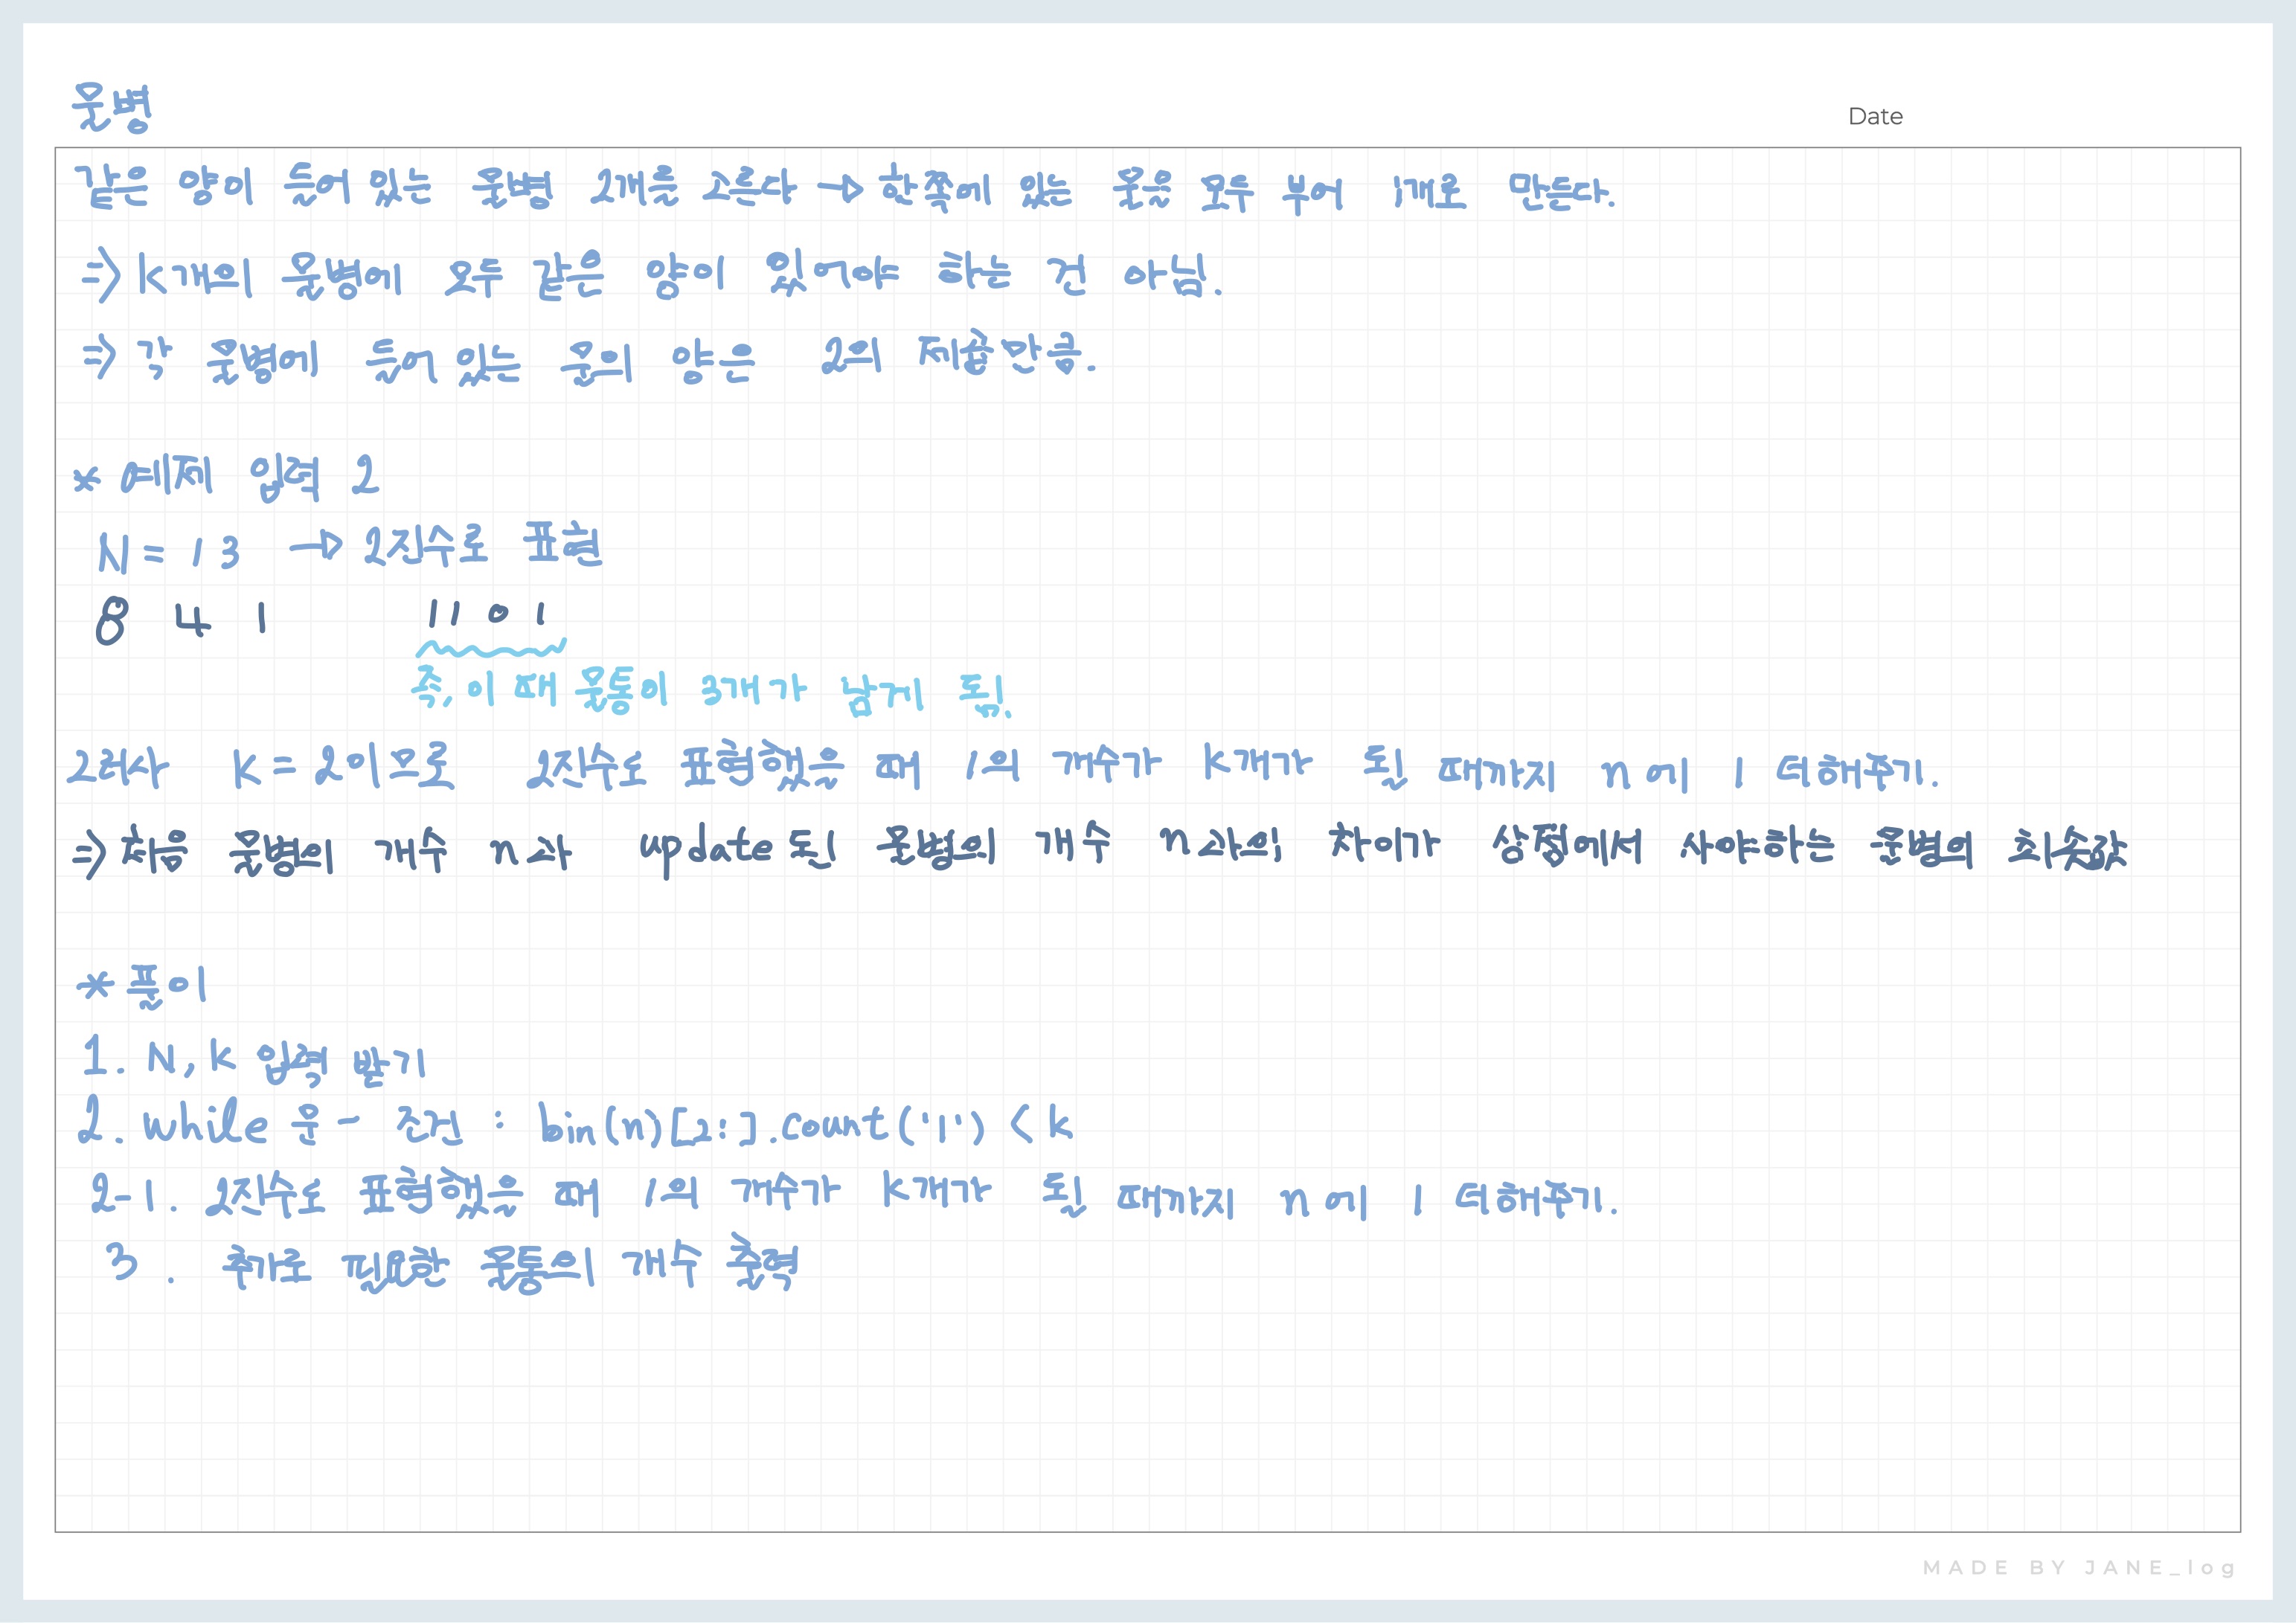 물병
Date
같은 양이 들어있는 물병 2개를 고른다 → 한쪽에 있는 물을 모두 부어 1개로 만든다.
⇒ K개의 물병에 모두 같은 양이 있어야 하는 건 아님.
⇒ 각 물병에 들어있는 물의 양은 2의 제곱만큼.
* 예제 입력 2
N = 13 → 2진수로 표현
8 4 1 1101
즉, 이 때 물통이 3개가 남게 됨.
그래서 K = 2이므로 2진수로 표현했을 때 1의 개수가 K개가 될 때까지 n에 1 더해주기.
⇒ 처음 물병의 개수 n과 update된 물병의 개수 n과의 차이가 상점에서 사야하는 물병의 최솟값
* 풀이
1. N, K 입력 받기
2. while문 - 조건 : bin(n)[2:].count('1') < k
2-1. 2진수로 표현했을 때 1의 개수가 K개가 될 때까지 n에 1 더해주기.
3. 추가로 필요한 물통의 개수 출력
MADE BY JANE_log